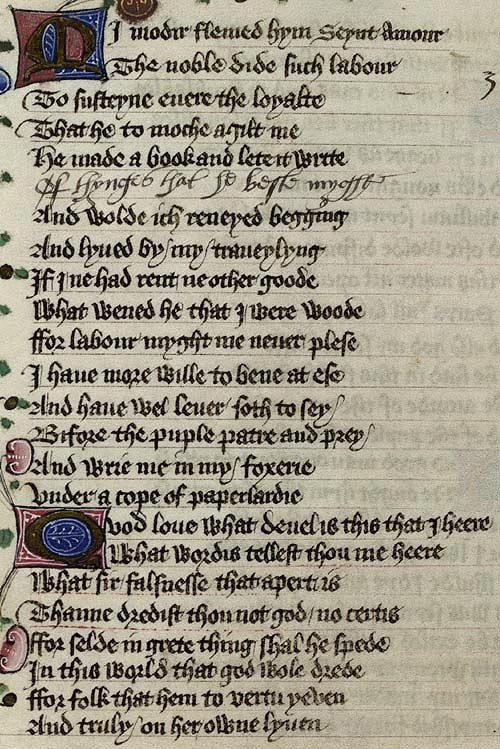 MI modir flemed hym Seynt Amour
The noble dide such labour
To susteyne evere the loyalte
That he to moche agilt me
He made a book and lete it write
Of thynges that he beste myght
And wolde ich reneyed begging
And lyved by / my / traveylyng
If I ne had rent ne other goode
What wened he that I were woode
ffor labour myght me never plese
I have more wille to bene at ese
And have wel lever / soth to sey /
Bifore the puple patre and prey /
And wrie me in my / foxerie
Under a cope of paperlardie
Quod love what devel is this that I heere
What wordis tellest thou me heere
What sir falsnesse that apert is
Thanne dredist thou not god / no certis
ffor selde in grete thing shal he spede
In this world that god wole drede
ffor folk that hem to vertu yeven
And truly / on her owne lyven
3